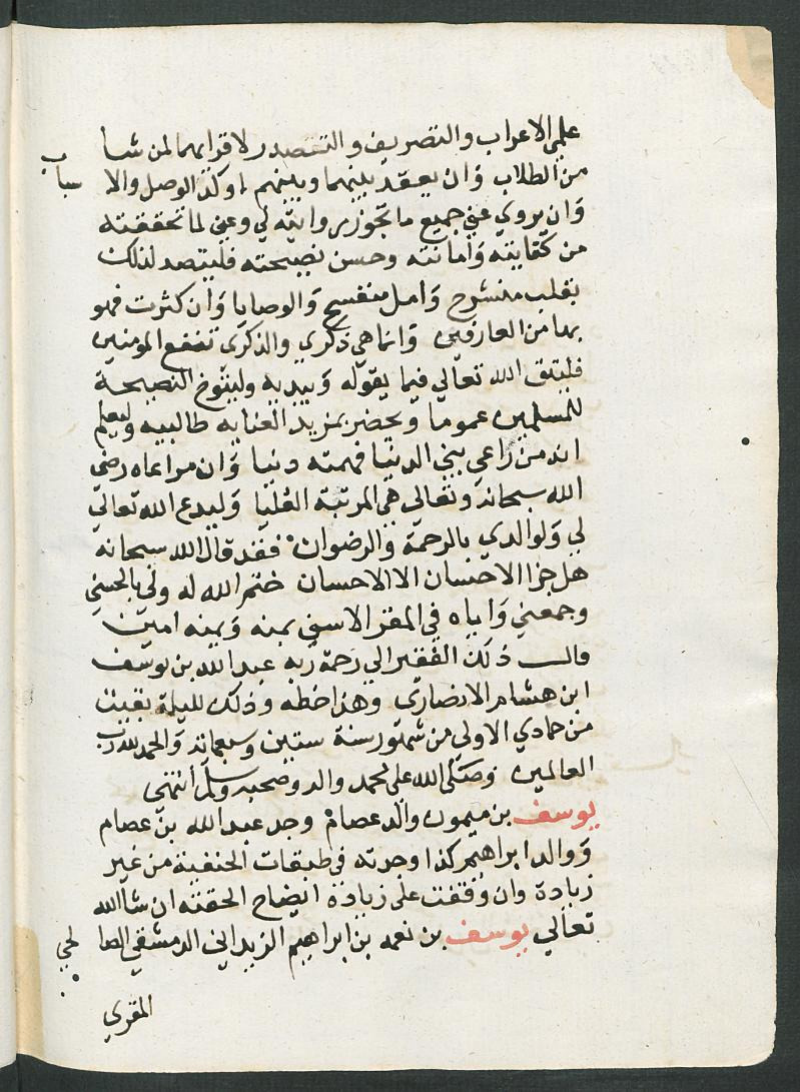 علي الاعراب والتصريف والتصدر لاقرايهما لمن شا
من الطلاب وان يعقد بينهما وبينهم اوكد الوصل والا سباب
وان يروي عني جميع ما تجوز روايته لي وعني لما تحققته
من كفايته وامانته وحسن نصيحته فليتصد لذلك
بقلب منشرح وامل منفسح والوصايا وان كثرت فهو
بها من العارفين وانما هي ذكري والذكرى تنفع المومنين
فليتق الله تعالي فيما يقوله ويبديه وليتوخ النصيحة
للمسلمين عموما ويحضر بمزيد العنايه طالبيه وليعلم
انه من راعي بني الدنيا فهمته دنيا وان مراعاه رضى
الله سبحانه وتعالي هي المرتبة العليا وليدع الله تعالي
لي ولوالدي بالرحمة والرضوان فقد قال الله سبحانه
هل جزا الاحسان الا الاحسان ختم الله له ولي بالحسني
وجمعني واياه في المقر الاسني بمنه ويمنه امين
قال ذلك الفقير الي رحمة ربه عبد الله بن يوسف
ابن هشام الانصاري وهذا خطه وذلك لليلة بقيت
من جمادي الاولي من شهور سنة ستين وسبعمائه والحمد لله رب
العالمين وصلى الله على محمد واله وصحبه وسلم انتهى
يوسف بن ميمون والد عصام وجد عبد الله بن عصام
ووالد ابراهيم كذا وجدته في طبقات الحنفية من غير
زيادة وان وقفت على زيادة ايضاح الحقته ان شا الله
تعالي يوسف بن نعمه بن ابراهيم الزبداني الدمشقي الصا لحي
المقري